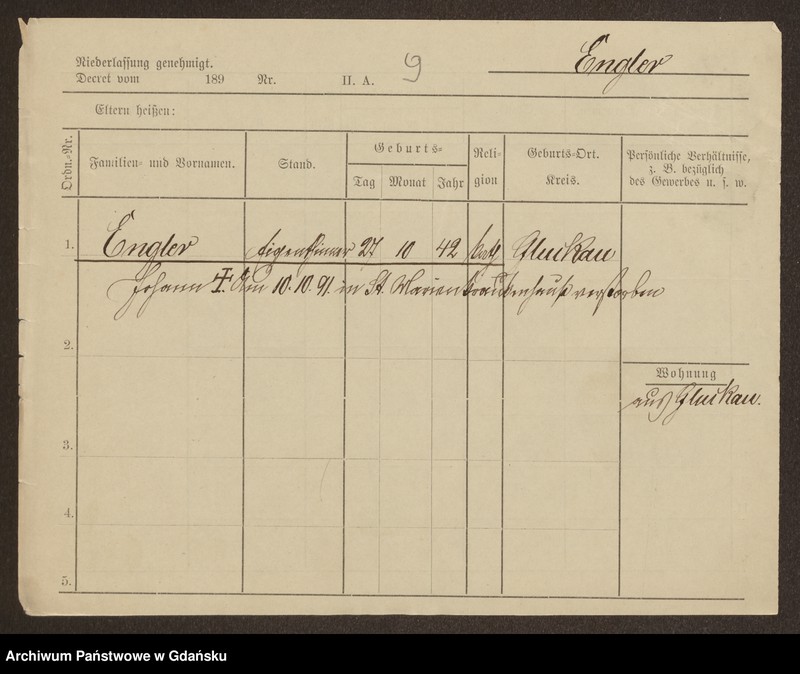 Niederlassung genehmigt.
Decret vom 189 Nr. II. A. 9 Engler
Eltern heißen:
Ordn.-Nr. Familien- und Vornamen. Stand. Geburts- Tag Monat Jahr Religion Geburts-Ort. Kreis. Persönliche Verhältnisse, z. B. bezüglich des Gewerbes u. s. w.
1. Engler Eigenthümer 27 10 42 kath Gluckau
Johann I. Am 10.10.91. in St. Marienkrankenhauß verstorben
2.
Wohnung
aus Gluckau.
3.
4.
5.
Archiwum Państwowe w Gdańsku